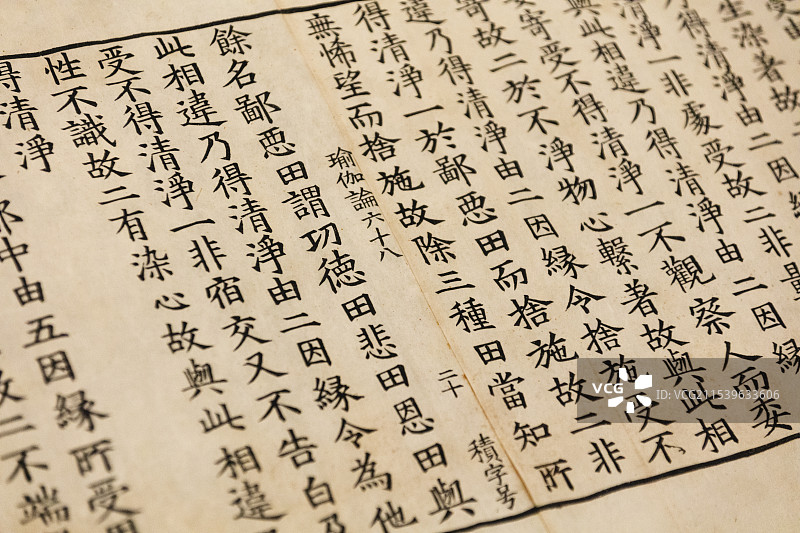 受由
生染著故
得清淨由二因緣
清淨一非處受故二非量
與此相違乃得清淨由二因緣
寄受不得清淨一不觀察人而委
寄故二於不淨物心繫著故與此相
違乃得清淨由二因緣令捨施受不
得清淨一於鄙惡田而捨施故二非
無悕望而捨施故除三種田當知所
瑜伽論六十八 二十 積字号
餘名鄙惡田謂功德田悲田恩田與
此相違乃得清淨由二因緣令為他
受不得清淨一非宿交又不告白及
性不識故二有染心故與此相違
得清淨
中由五因緣所受
故二不端
VCG
VCG
ID:VCG211539633606